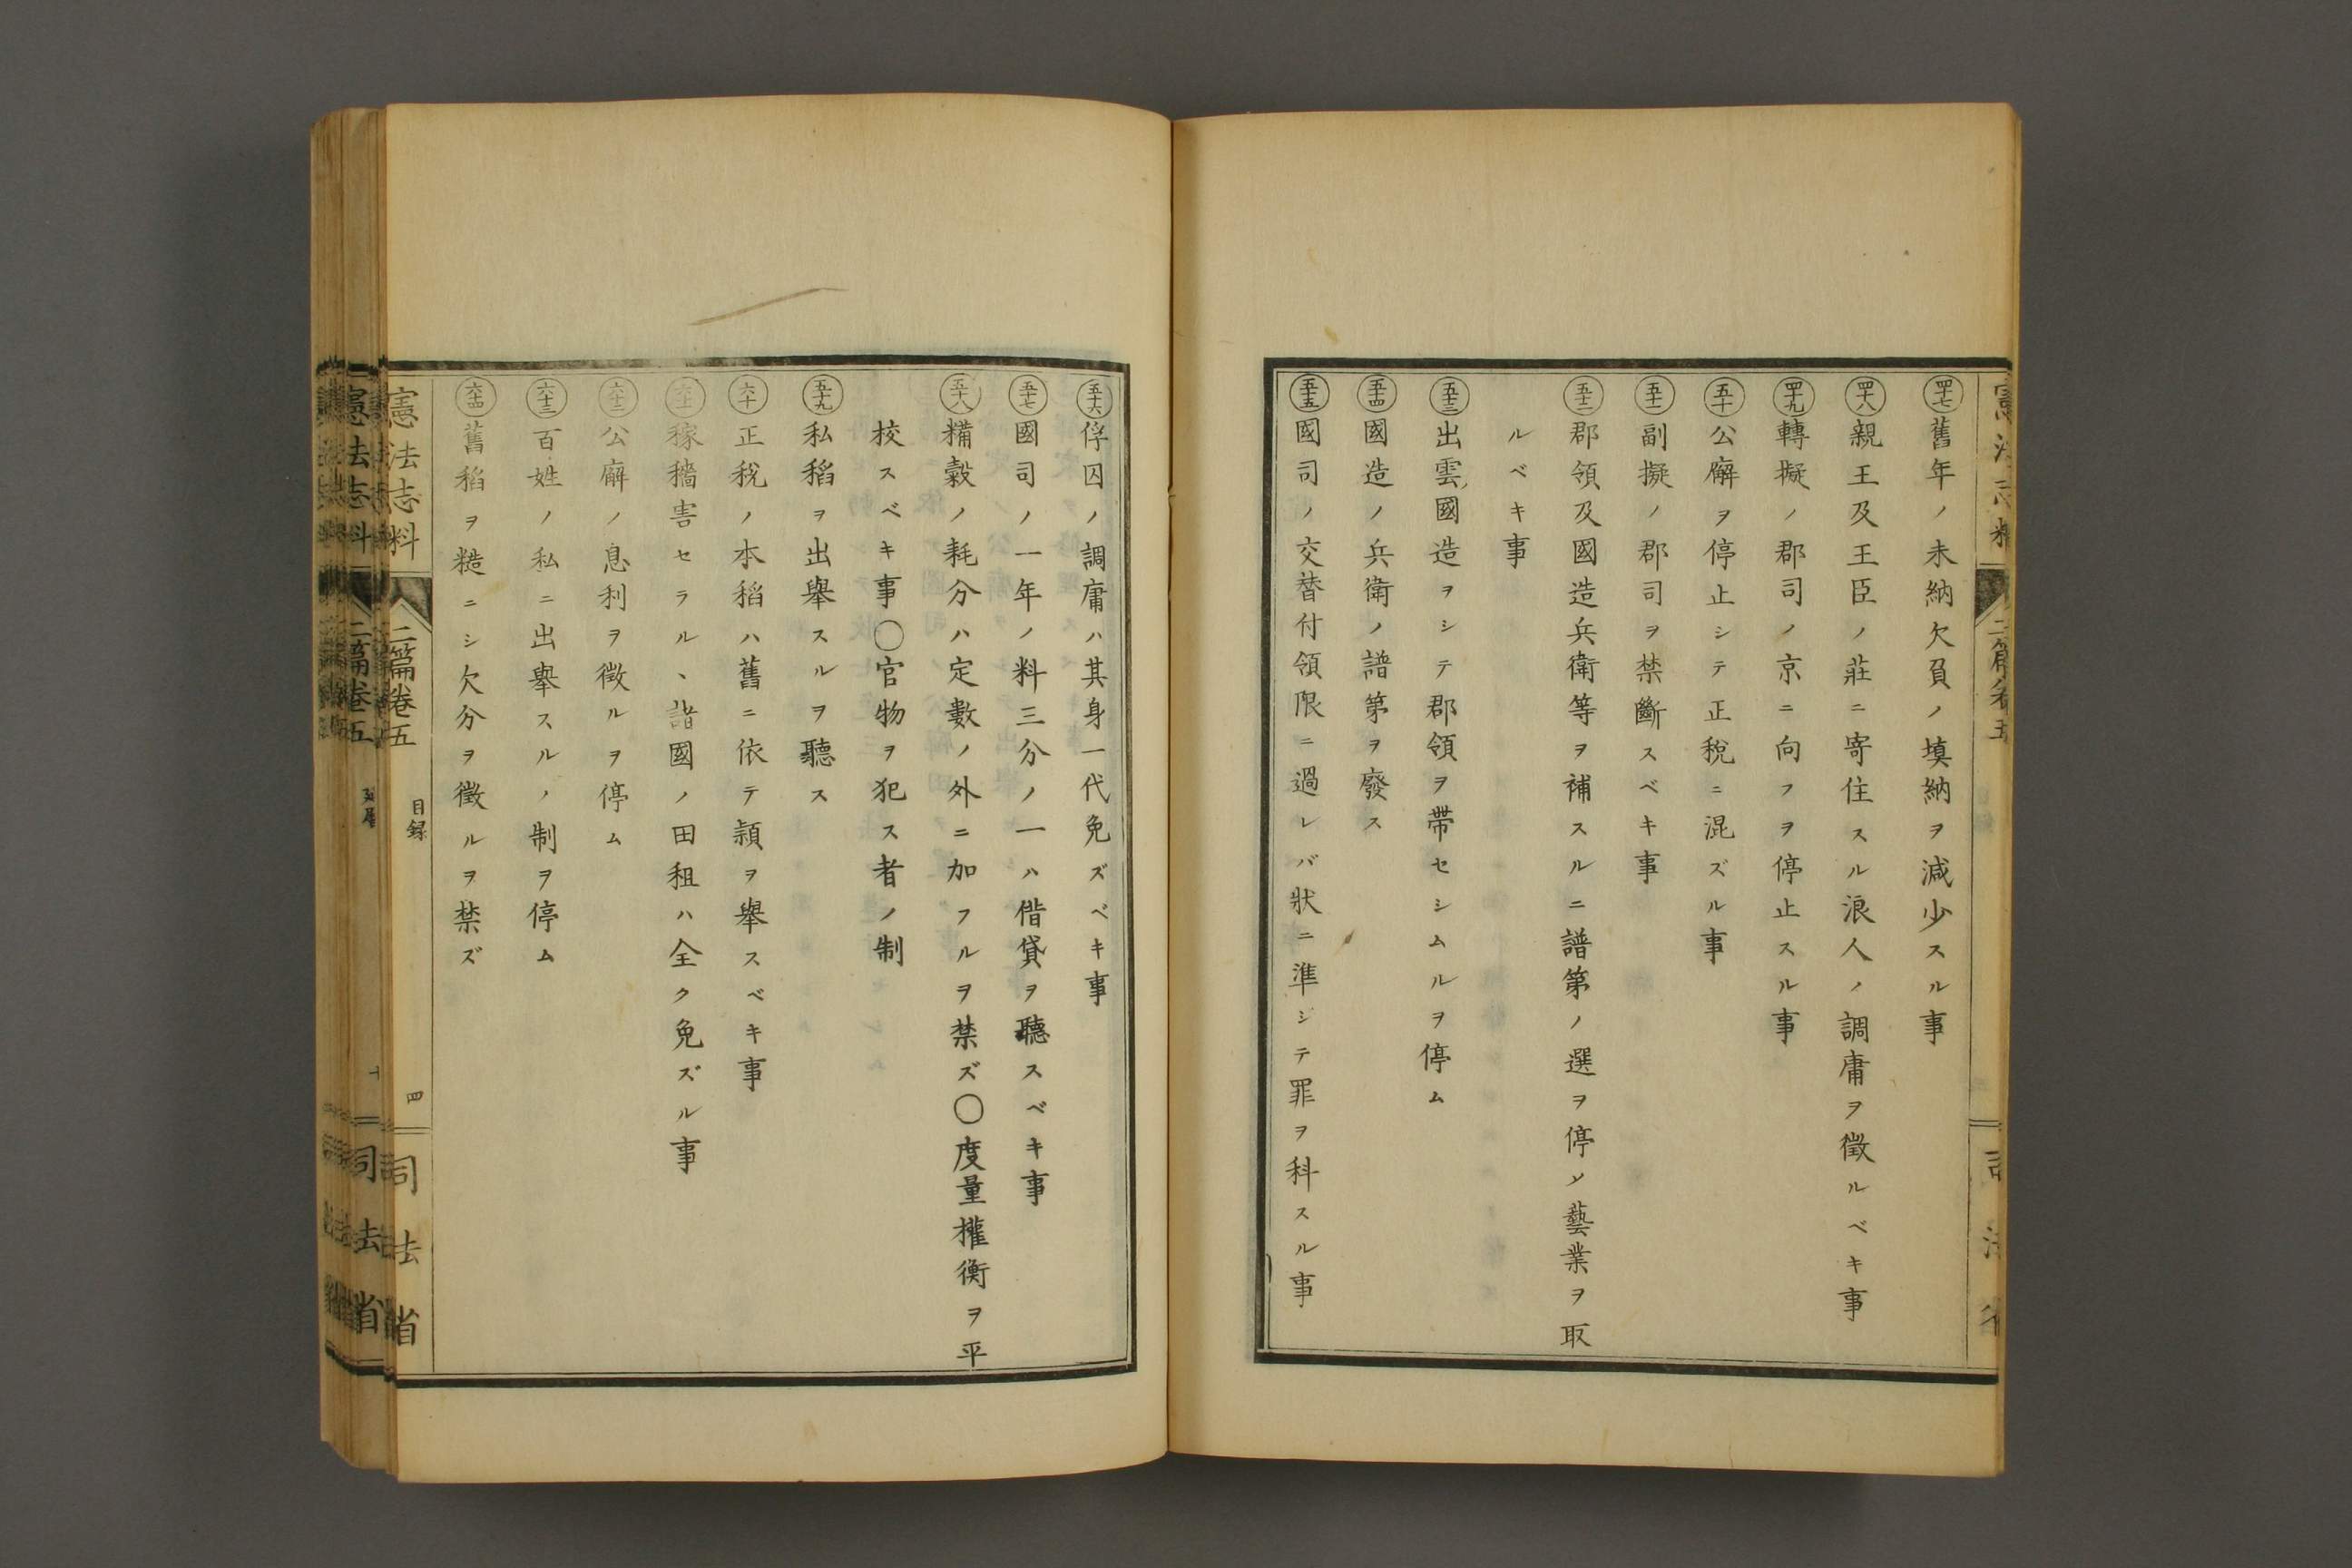 四十七 舊年ノ未納欠負ノ塡納ヲ減少スル事
四十八 親王及王臣ノ莊ニ寄住スル浪人ノ調庸ヲ徵ルベキ事
四十九 轉擬ノ郡司ノ京ニ向フヲ停止スル事
五十 公廨ヲ停止シテ正稅ニ混ズル事
五十一 副擬ノ郡司ヲ禁斷スベキ事
五十二 郡領及國造兵衛等ヲ補スルニ譜第ノ選ヲ停メ藝業ヲ取
ルベキ事
五十三 出雲國造ヲシテ郡領ヲ帶セシムルヲ停ム
五十四 國造ノ兵衛ノ譜第ヲ廢ス
五十五 國司ノ交替付領限ニ過レバ狀ニ準シテ罪ヲ科スル事
五十六 俘囚ノ調庸ハ其身一代免ズベキ事
五十七 國司ノ一年ノ料三分ノ一ハ借貸ヲ聽スベキ事
五十八 糒穀ノ耗分ハ定數ノ外ニ加フルヲ禁ズ〇度量權衡ヲ平
校スベキ事〇官物ヲ犯ス者ノ制
五十九 私稻ヲ出擧スルヲ聽ス
六十 正稅ノ本稻ハ舊ニ依テ穎ヲ擧スベキ事
六十一 稼穡害セラル、諸國ノ田租ハ全ク免ズル事
六十二 公廨ノ息利ヲ徵ルヲ停ム
六十三 百姓ノ私ニ出擧スルノ制ヲ停ム
六十四 舊稻ヲ糙ニシ欠分ヲ徵ルヲ禁ズ
憲法志料 二篇卷五 目録 四 司法省
憲法志料 二篇卷五 司法省